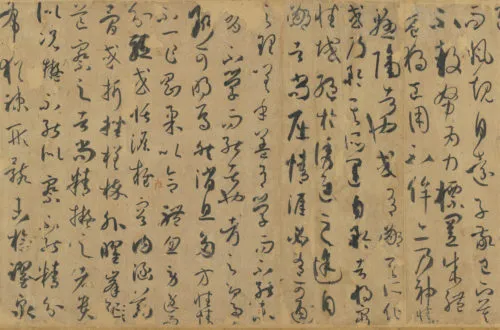 而風規自遠子敬已下莫
不鼓努為力標置成體
豈獨工用不侔亦乃神情
懸隔者也或有鄙其所作
或乃矜其所運自矜者將窮
性域絕於誘進之途自
鄙者尚屈情涯必有可通
之理嗟乎蓋有學而不能未
有不學而能者也考之即事
斷可明焉然消息多方性情
不一乍剛柔以合體忽勞逸而
分驅或恬憺雍容內涵筋
骨或折挫槎枿外曜鋒
芒察之者尚精擬之者貴
似況擬不能似察不能精分
布猶疏形骸未檢躍泉